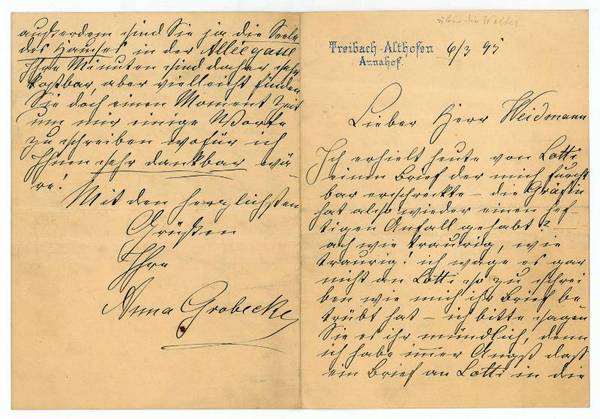 Treibach-Althofen
Annahof.
6/3 95
Lieber Herr Weidmann
Ich erhielt heute von Lotti
einen Brief der mich furcht
bar erschreckte – die Gräfin
hat also wieder einen hef-
tigen Anfall gehabt?
ach wie traurig, wie
traurig! ich wage es gar
nicht an Lotti so zu schrei
ben wie mich ihr Brief be
trübt hat – ich bitte sagen
Sie es ihr mündlich, denn
ich habe imer Angst daß
ein Brief an Lotti in die
außerdem sind Sie ja die Seele
des Hauses in der Alleegasse
Ihre Minuten sind daher sehr
kostbar, aber vielleicht finden
Sie doch einen Moment Zeit
um mir einige Worte
zu schreiben wofür ich
Ihnen sehr dankbar wä-
re!
Mit den herzlichsten
Grüßen
Ihre
Anna Grobecke